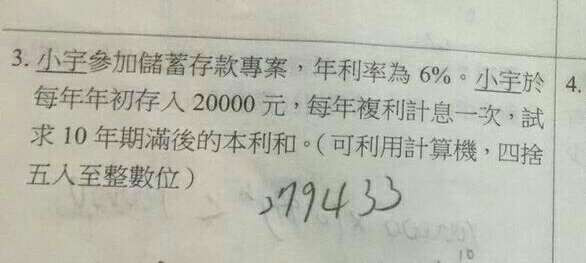 3. 小宇參加儲蓄存款專案，年利率為 6%。小宇於
每年年初存入 20000 元，每年複利計息一次，試
求 10 年期滿後的本利和。（可利用計算機，四捨
五入至整數位）
279433
4.